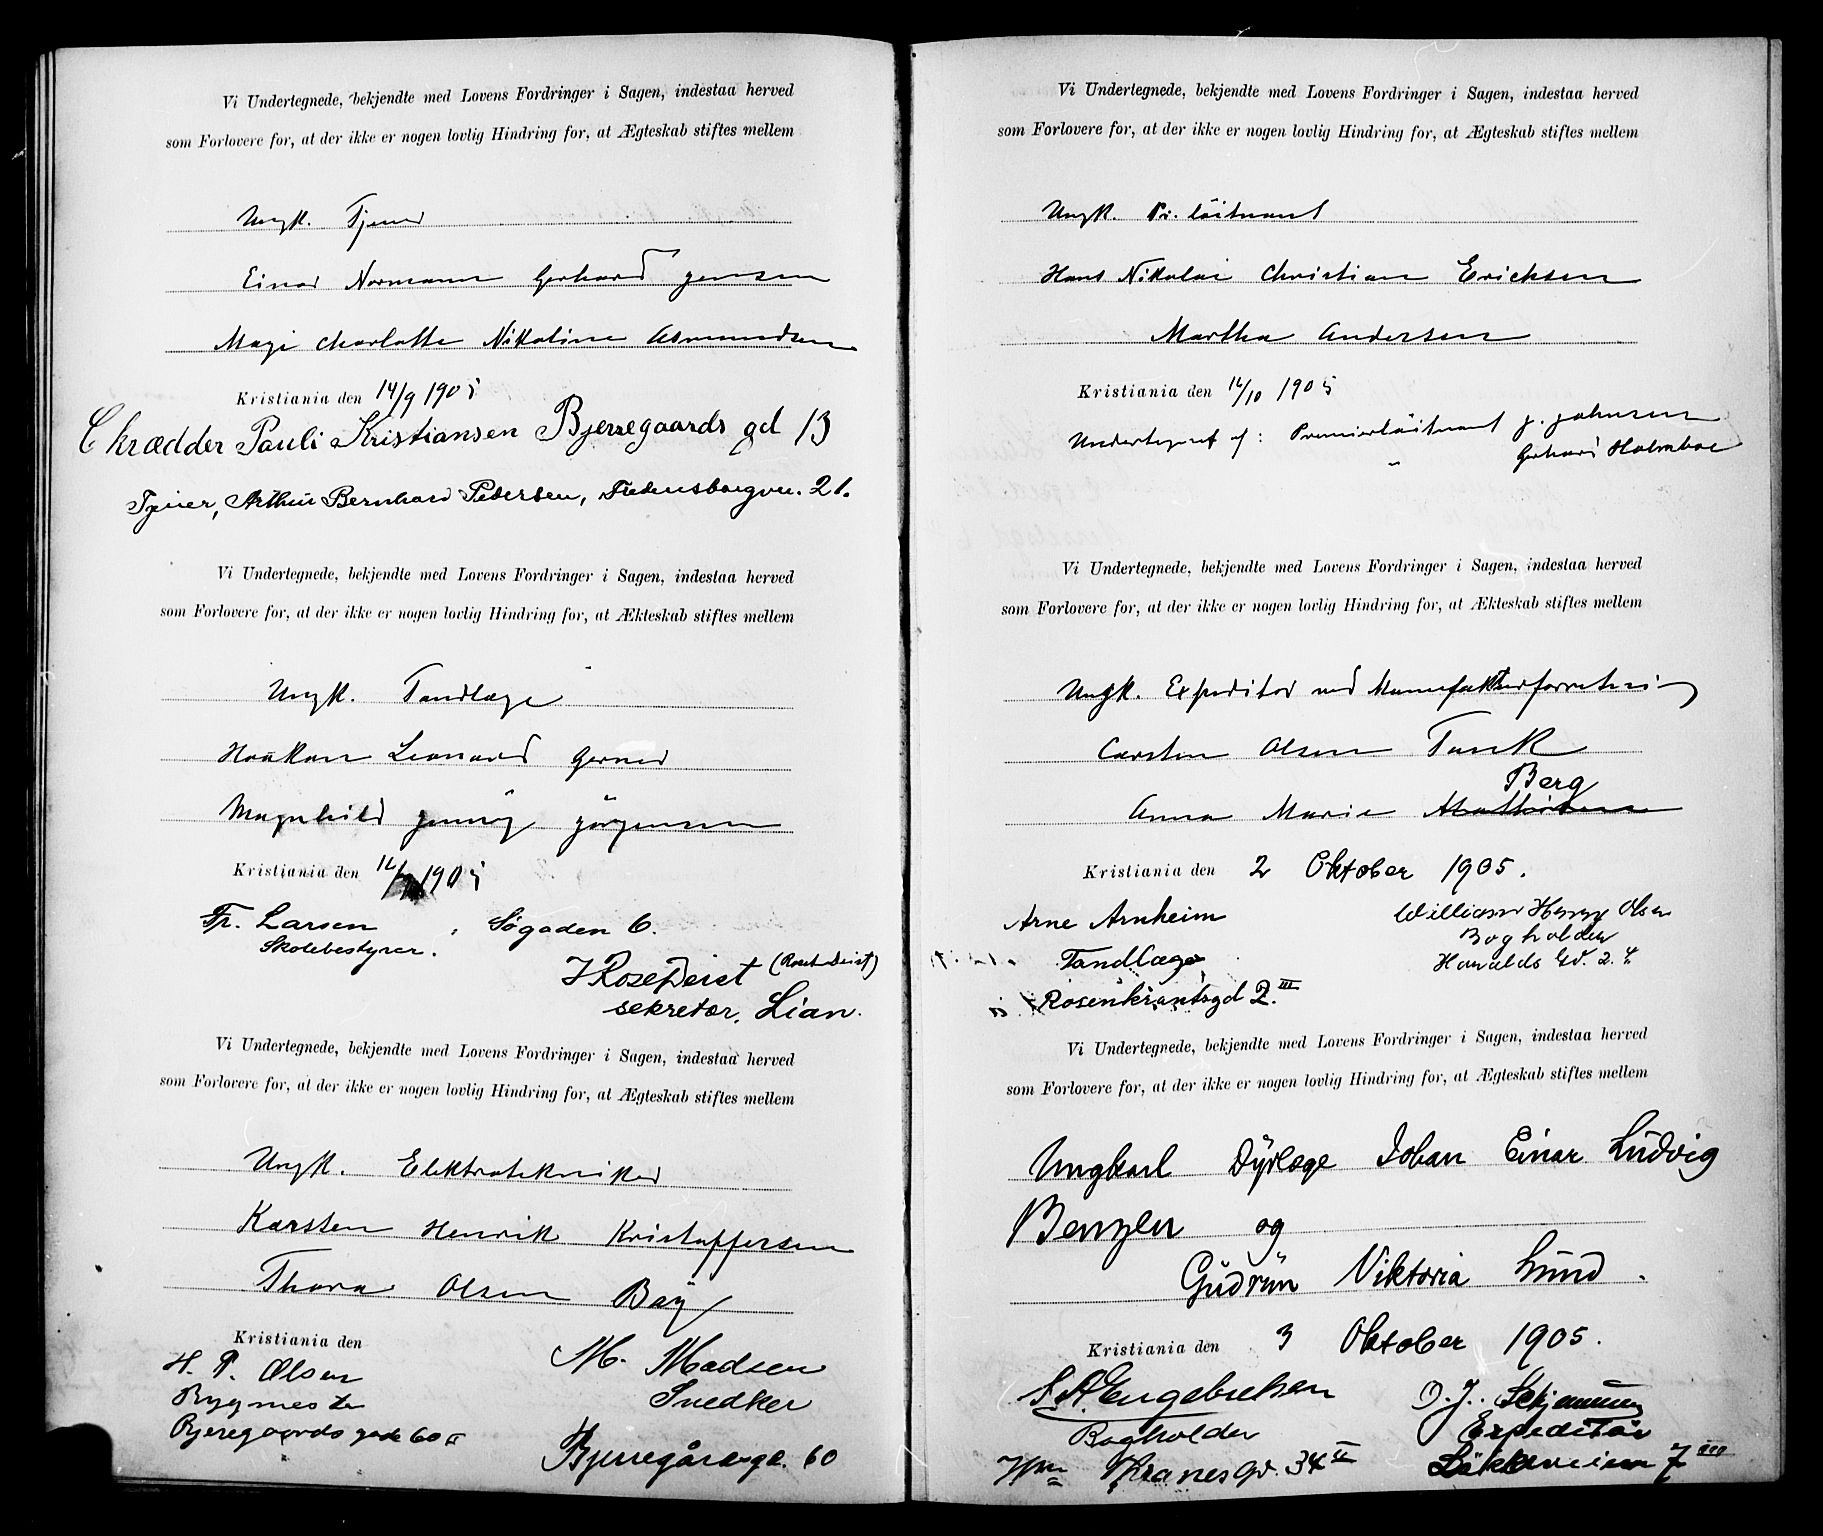 Vi Undertegnede, bekjendte med Lovens Fordringer i Sagen, indestaa herved
som Forlovere for, at der ikke er nogen lovlig Hindring for, at Ægteskab stiftes mellem
Ungk. Tjener
Einar Normann Gerhard Jensen
Magi Charlotte Nikoline Asmundsen
Kristiania den 14/9 1905
Skrædder Pauli Kristiansen Bjerregaards gd 13
Tjener, Arthur Bernhard Pedersen, Fredensborgvei. 21.
Vi Undertegnede, bekjendte med Lovens Fordringer i Sagen, indestaa herved
som Forlovere for, at der ikke er nogen lovlig Hindring for, at Ækteskab stiftes mellem
Ungk. Tandlæge
Haakon Leonard Gerner
Magnhild Jenny Jörgensen
Kristiania den 1905
Fr. Larsen, Søgaden 6.
Skolebestyrer.
(Rosef Deist)
sekretær, Lian.
Vi Undertegnede, bekjendte med Lovens Fordringer i Sagen, indestaa herved
som Forlovere for, at der ikke er nogen lovlig Hindring for, at Ægteskab stiftes mellem
Ungk. Elektrotekniker
Karsten Henrik Kristoffersen
Thora Olsen Bøÿ
Kristiania den
H. P. Olsen
Bygmester
Bjeregaards gade 60 a
M. Madsen
Snedker
Bjerregårdsgd. 60
Vi Undertegnede, bekjendte med Lovens Fordringer i Sagen, indestaa herved
som Forlovere for, at der ikke er nogen lovlig Hindring for, at Ægteskab stiftes mellem
Ungk. Pr. löitnant
Hans Nikolai Christian Erichsen
Martha Andersen
Kristiania den 16/10 1905
Undertegnet af: Premierlöitnant J. Johnsen
" Gerhard Holmboe
Vi Undertegnede, bekjendte med Lovens Fordringer i Sagen, indestaa herved
som Forlovere for, at der ikke er nogen lovlig Hindring for, at Ækteskab stiftes mellem
Ungk. Expeditør ved Manufakturforretning
Carsten Olsen Tank
Berg
Anna Marie
Kristiania den 2 Oktober 1905.
Arne Arnheim
Tandlæge
Rosenkrantsgd 2. III
William Henry Olsen
Bogholder
Haralds Gd. 2. 4.
Vi Undertegnede, bekjendte med Lovens Fordringer i Sagen, indestaa herved
som Forlovere for, at der ikke er nogen lovlig Hindring for, at Ægteskab stiftes mellem
Ungkarl Dÿrlæge Johan Einar Ludvig
Benzen og
Gudrun Viktoria Lund.
Kristiania den 3 Oktober 1905.
S. A. Engebretsen
Bogholder
Kranes Gd. 34 II
O. J.
Expeditör
7 III